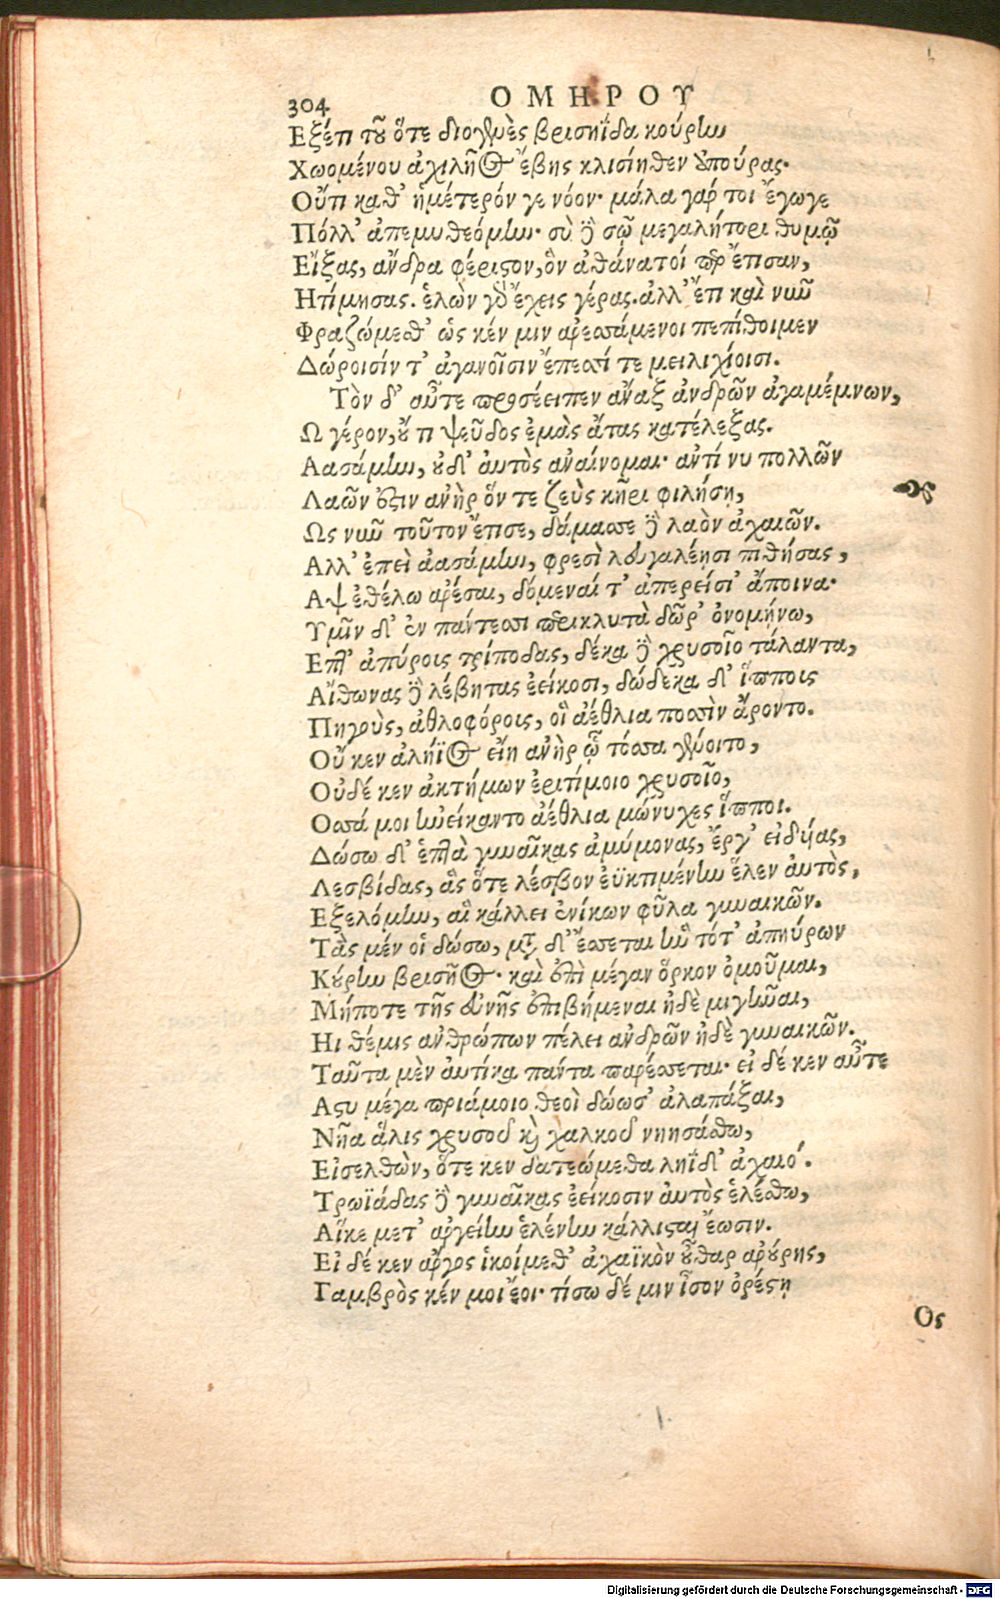 304 ΟΜΗΡΟΥ
Εξέτι τοῦ ὅτε διογενὲς βρισηΐδα κούρην
Χωομένου ἀχιλῆος ἔβης κλισίηθεν ἀπούρας·
Οὔτι καθ' ἡμέτερόν γε νόον· μάλα γάρ τοι ἔγωγε
Πόλλ' ἀπεμυθεόμην· σὺ δὲ σῷ μεγαλήτορι θυμῷ
Εἴξας, ἄνδρα φέριστον, ὃν ἀθάνατοί περ ἔτισαν,
Ητίμησας. ἑλὼν γὰρ ἔχεις γέρας. ἀλλ' ἔτι καὶ νῦν
Φραζώμεσθ' ὥς κέν μιν ἀρεσσάμενοι πεπίθοιμεν
Δώροισίν τ' ἀγανοῖσιν ἔπεσσί τε μειλιχίοισι.
Τὸν δ' αὖτε προσέειπεν ἄναξ ἀνδρῶν ἀγαμέμνων,
Ω γέρον, οὔ τι ψεῦδος ἐμὰς ἄτας κατέλεξας.
Αασάμην, οὐδ' αὐτὸς ἀναίνομαι· ἀντί νυ πολλῶν
Λαῶν ἐστιν ἀνὴρ ὅν τε ζεὺς κῆρι φιλήσῃ,
Ως νῦν τοῦτον ἔτισε, δάμασσε δὲ λαὸν ἀχαιῶν.
Αλλ' ἐπεὶ ἀασάμην, φρεσὶ λευγαλέῃσι πιθήσας,
Αψ ἐθέλω ἀρέσαι, δόμεναί τ' ἀπερείσι' ἄποινα·
Υμῖν δ' ἐν πάντεσσι περικλυτὰ δῶρ' ὀνομήνω,
Επτ' ἀπύροις τρίποδας, δέκα δὲ χρυσοῖο τάλαντα,
Αἴθωνας δὲ λέβητας ἐείκοσι, δώδεκα δ' ἵπποις
Πηγοὺς, ἀθλοφόροις, οἳ ἀέθλια ποσσὶν ἄροντο.
Οὔ κεν ἀλήϊος εἴη ἀνὴρ ᾧ τόσσα γένοιτο,
Οὐδέ κεν ἀκτήμων ἐριτίμοιο χρυσοῖο,
Οσσά μοι ἠνείκαντο ἀέθλια μώνυχες ἵπποι.
Δώσω δ' ἑπτὰ γυναῖκας ἀμύμονας, ἔργ' εἰδυίας,
Λεσβίδας, ἃς ὅτε λέσβον ἐϋκτιμένην ἕλεν αὐτὸς,
Εξελόμην, αἳ κάλλει ἐνίκων φῦλα γυναικῶν.
Τὰς μέν οἱ δώσω, μετὰ δ' ἔσσεται ἣν τότ' ἀπηύρων
Κούρην βρισῆος· καὶ ἐπὶ μέγαν ὅρκον ὀμοῦμαι,
Μήποτε τῆς εὐνῆς ἐπιβήμεναι ἠδὲ μιγῆναι,
Ηι θέμις ἀνθρώπων πέλει ἀνδρῶν ἠδὲ γυναικῶν.
Ταῦτα μὲν αὐτίκα πάντα παρέσσεται· εἰ δέ κεν αὖτε
Αςυ μέγα πριάμοιο θεοὶ δώωσ' ἀλαπάξαι,
Νῆα ἅλις χρυσοῦ καὶ χαλκοῦ νηησάσθω,
Εἰσελθὼν, ὅτε κεν δατεώμεθα ληΐδ' ἀχαιοί.
Τρωϊάδας δὲ γυναῖκας ἐείκοσιν αὐτὸς ἑλέσθω,
Αἵκε μετ' ἀργείην ἑλένην κάλλισται ἔωσιν.
Εἰ δέ κεν ἄργος ἱκοίμεθ' ἀχαϊκὸν οὖθαρ ἀρούρης,
Γαμβρὸς κέν μοι ἔοι· τίσω δέ μιν ἶσον ὀρέστῃ
Ος
Digitalisierung gefördert durch die Deutsche Forschungsgemeinschaft - DFG